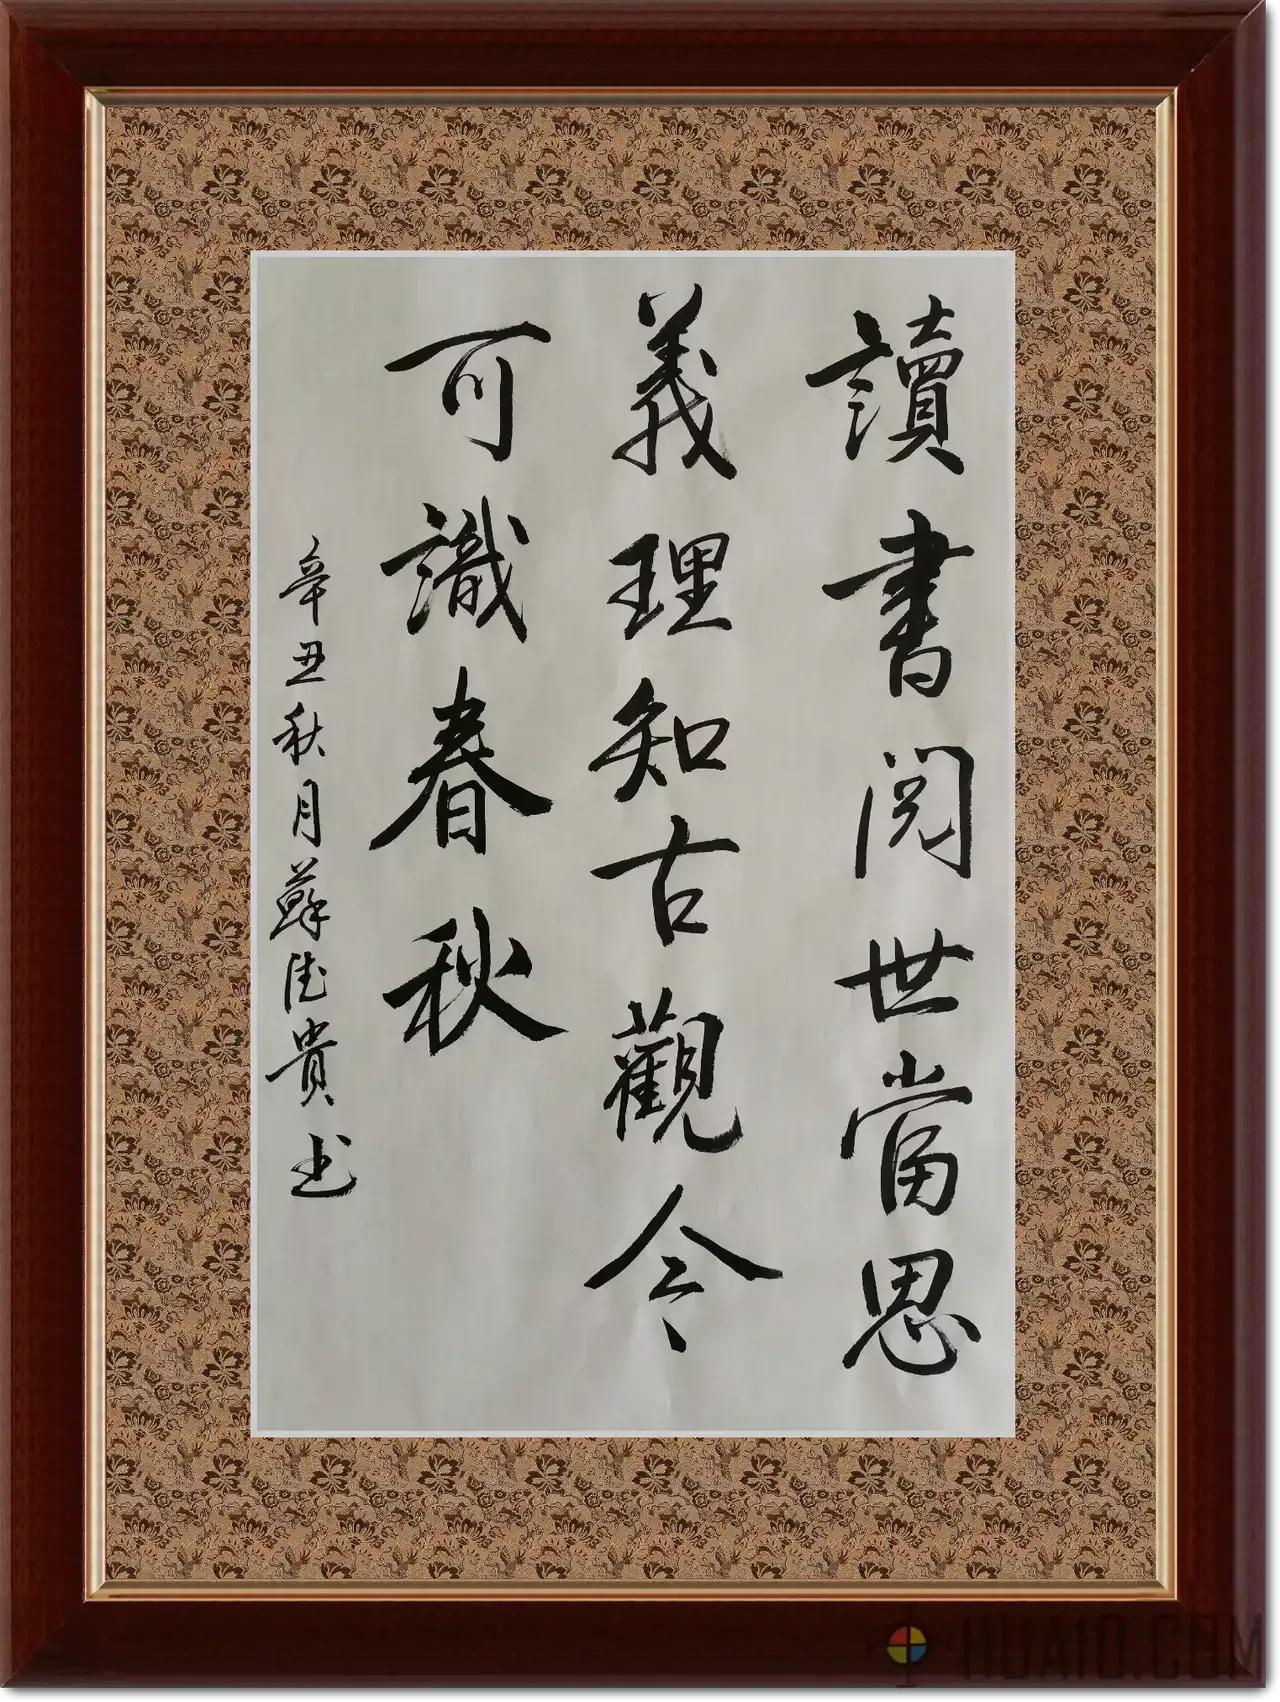 讀書閱世當思
義理知古觀今
可識春秋
辛丑秋月蘇德貴书
HUA10.COM